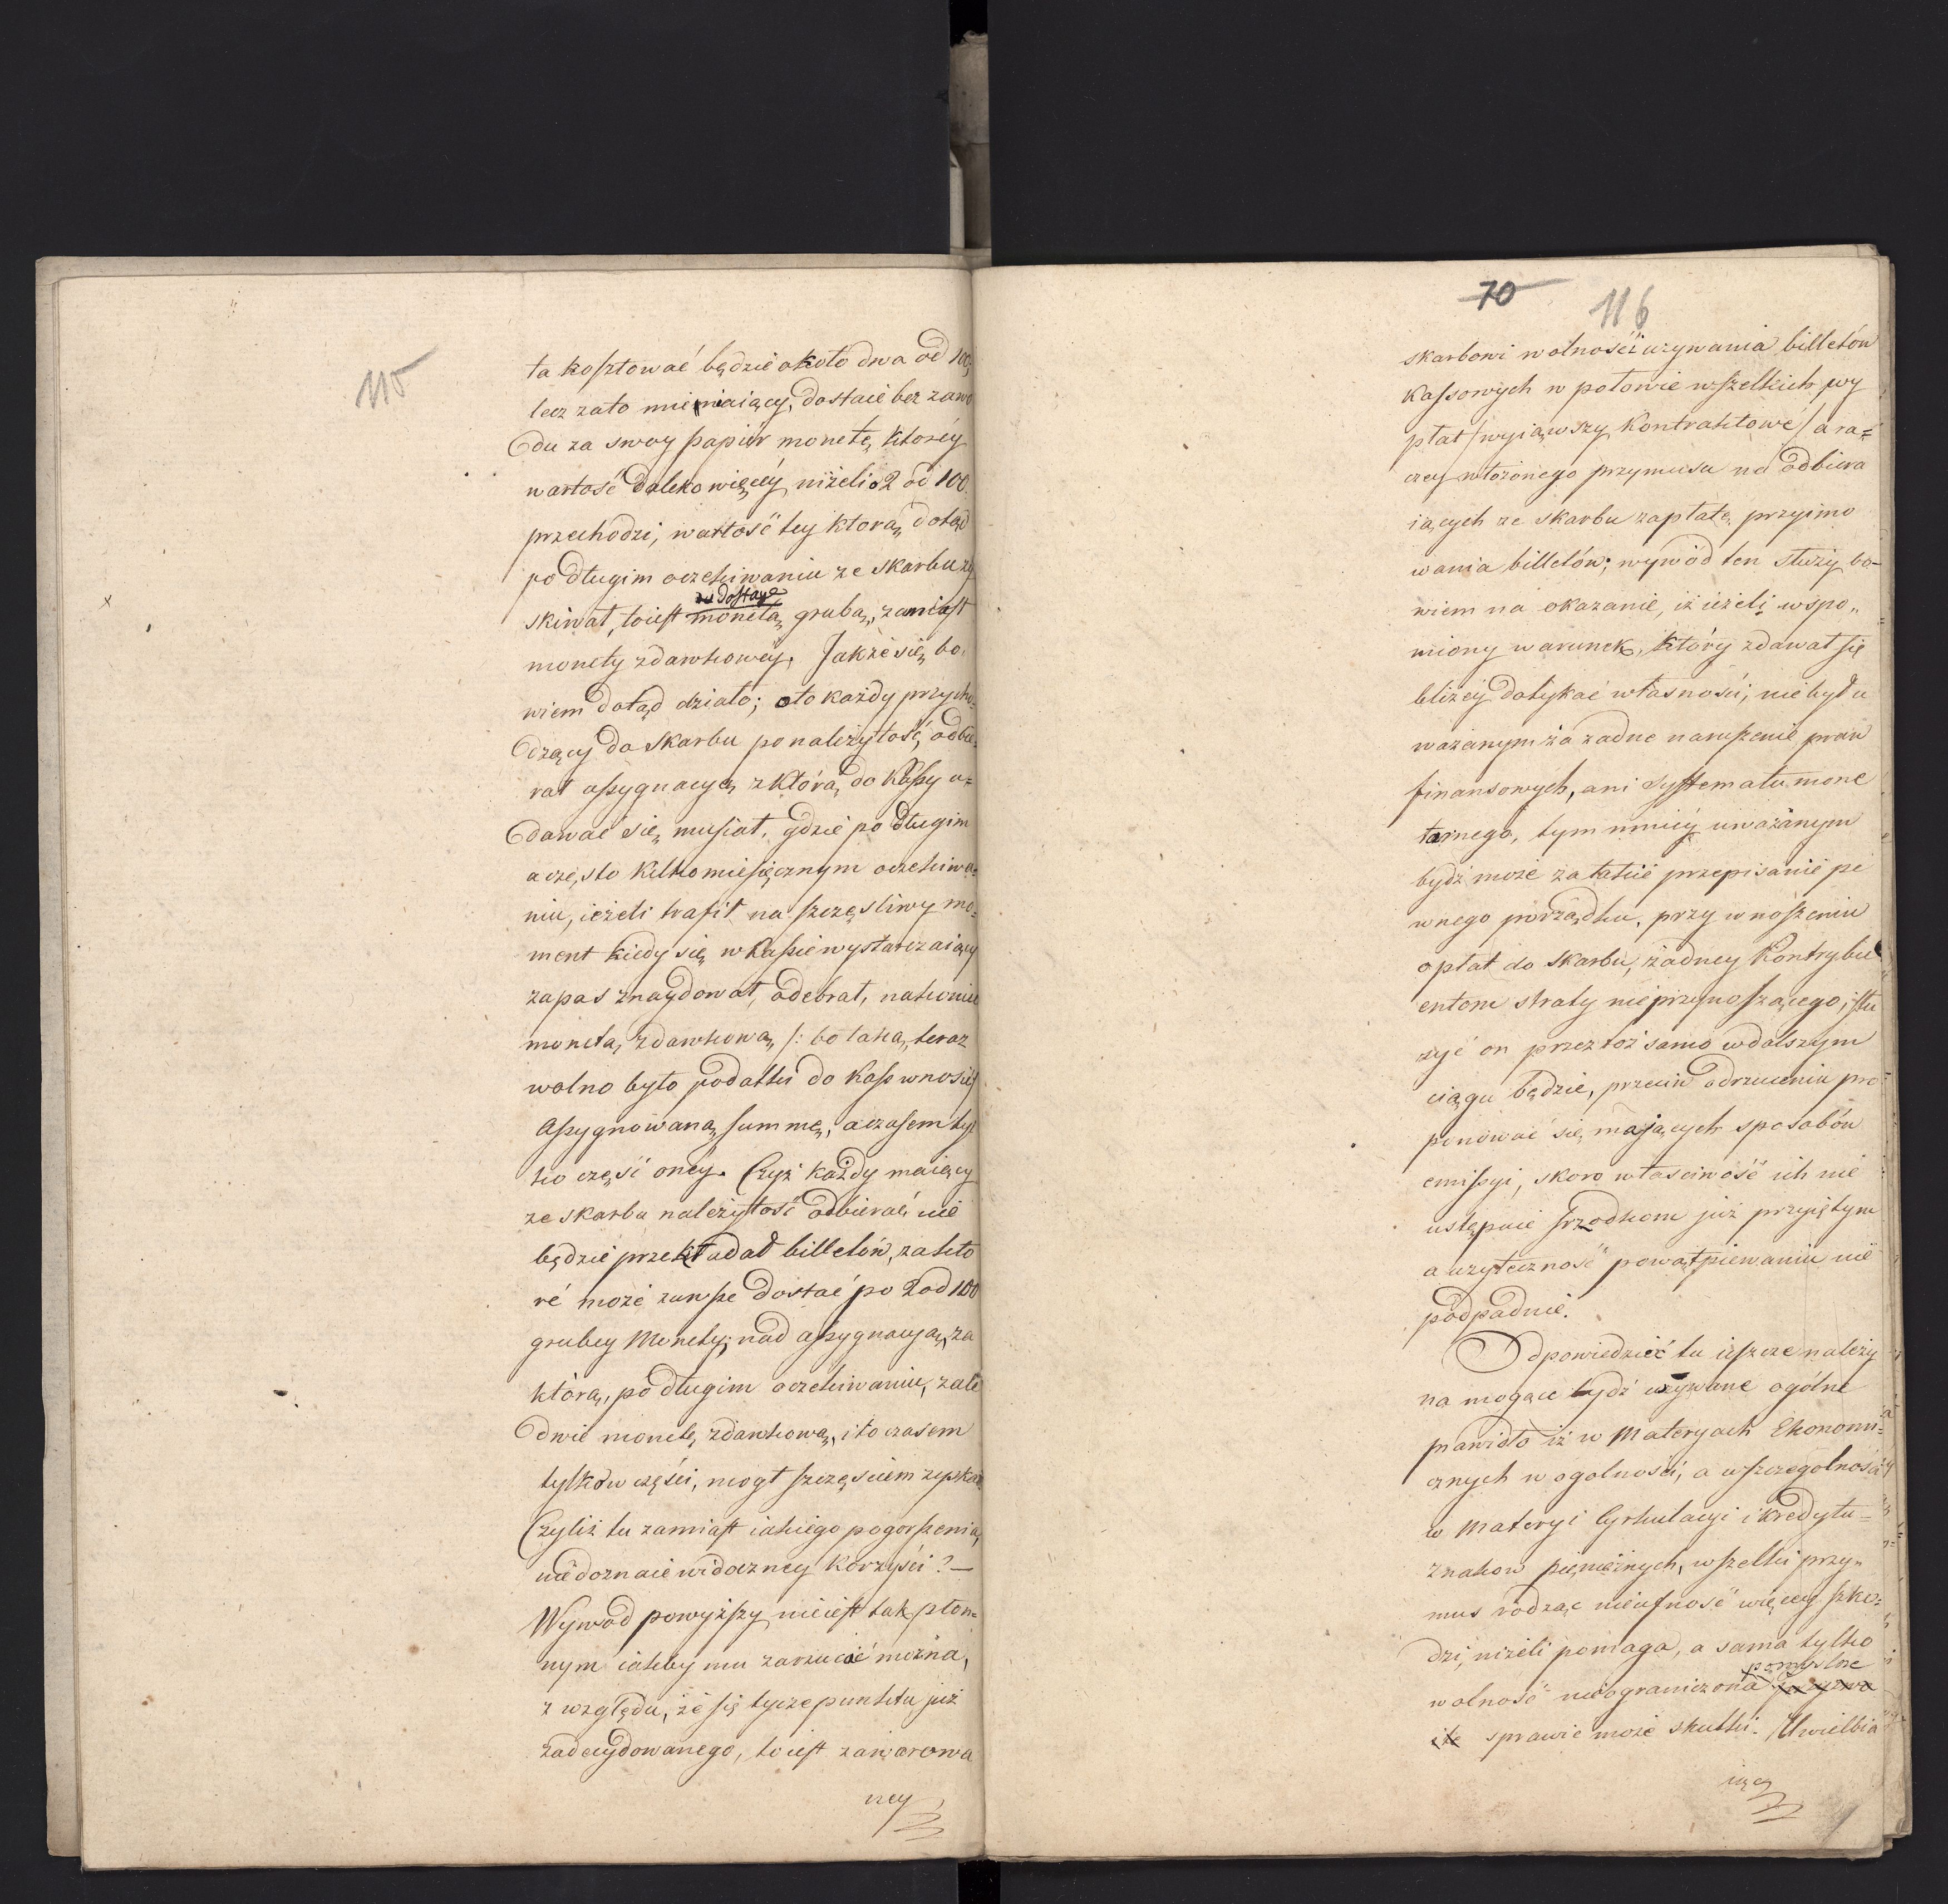 115
ta kosztować będzie około dwa od 100,
lecz zato mieniaiący, dostaie bez zawo
du za swoy papier monetę, ktorey
wartość daleko więcey, niżeli 2 od 100.
przechodzi, wartość tey ktorą dotąd
po długim oczekiwaniu ze skarbu zy
skiwał, toiest monetą grubą, zamiast
monety zdawkowey. Jakże się bo,
wiem dotąd działo; oto każdy przycho=
dzący do Skarbu po należytość, odbie=
rał assygnacyą z którą do Kassy u=
dawać się musiał, gdzie po długim
a często kilkomiesięcznym oczekiwa=
niu, ieżeli trafił na szczęśliwy mo=
ment kiedy się w kassie wystarczaiący
zapas znaydował, odebrał, nakoniec
monetą zdawkową /: bo taką, teraz
wolno było podatki do kass wnosić/
Assygnowaną summę, a czasem tyl
ko część oney. Czyż każdy maiący
ze skarbu należytość odbierać, nie
będzie przekładał billetów, za kto
ré może zawsze dostać po 2 od 100
grubey Monety, nad assygnacyą, za
którą, po długim oczekiwaniu, zale
dwie monetę zdawkową, i to czasem
tylko w części, mogł szczęściem zyskać
Czyliż tu zamiast iakiego pogorszenia,
nie doznaie widoczney korzyści? —
Wywód powyższy nieiest tak płon=
nym iakby mu zarzucić można,
z względu, że się tycze punktu już
zadecydowanego, toiest zawarowa
ney
70 116
skarbowi wolności używania billetów
Kassowych w połowie wszelkich wy
płat /wyiąwszy Kontraktowé/ a ra=
czey włożonego przymusu na odbiera
iących ze skarbu zapłatę, przyimo
wania billetów; wywód ten służy bo-
wiem na okazanie, iż ieżeli wspo„
miony warunek, który zdawał się
bliżey dotykać własności, nie był u
ważanym za żadne naruszenie praw
finansowych, ani Systematu mone
tarnego, tym mniey uważanym
bydź może za takie przepisanie pe
wnego porządku, przy wnoszeniu
opłat do skarbu, żadney Kontrybu
entom straty nieprzynoszącego; słu
żyć on przez toż samo w dalszym
ciągu będzie, przeciw odrzuceniu pro
ponować się mających sposobów
emissyi, skoro właściwość ich nie
ustępuie srzodkom już przyiętym
a użyteczność powątpiewaniu nie
podpadnie.
Odpowiedzieć tu ieszcze należy
na mogące bydź używane ogólne
prawidło iż w Materyach Ekonomi=
cznych w ogolności, a wszczegolności
w Materyi Cyrkulacyi i kredytu=
znakow pieniężnych, wszelki przy„
mus rodząc nieufność więcey szko=
dzi, niżeli pomaga, a sama tylko
pomyslne
wolność nieograniczona
sprawić może skutki. Uwielbia
iąc